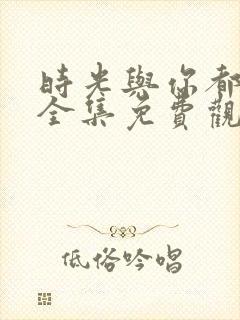 時光與你都
全集免費觀
低俗吟唱